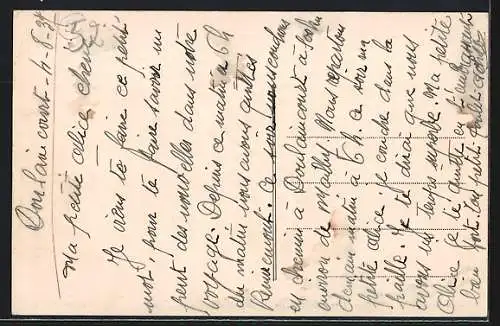 Doulaincourt 4-8-39
Ma petite Alice cherie
Je viens te faire ce petit
mot pour te faire savoir un
petit des nouvelles dans notre
voyage. Depuis ce matin a 6h
du matin nous avons quittés
Remiremont. Ce soir nous couchons
en chemin à Doulaincourt à
environ de Nous repartons
demain matin à 6 h. ce soir ma
petite Alice je couche dans la
paille. Je te dirai que nous
avons un temps superbe. Ma petite
Alice je te quitte en t'embrassant
bien fort. Ton petit